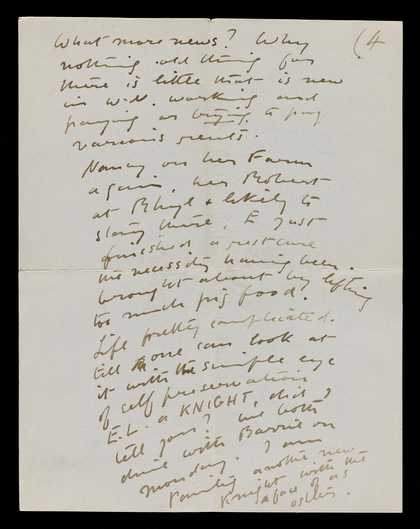 What more news? Why (4
nothing old thing for
there is little that is new
in W.N. working and
paying or trying to pay
various rents.
Nancy on her Farm
again, her Robert
at Rhyl & likely to
stay there, E just
finished a rest cure
the necessity having been
brought about by lifting
too much pig food.
Life pretty complicated.
till one can look at
it with the simple eye
of self preservation
E.L. a KNIGHT, did I
tell you? we both
dine with Barrie on
monday. I am
painting another new
Knight with the
face of an